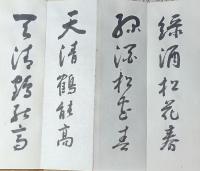 綠酒松花春
綠酒松花春
天清鶴能高
天清鶴能高